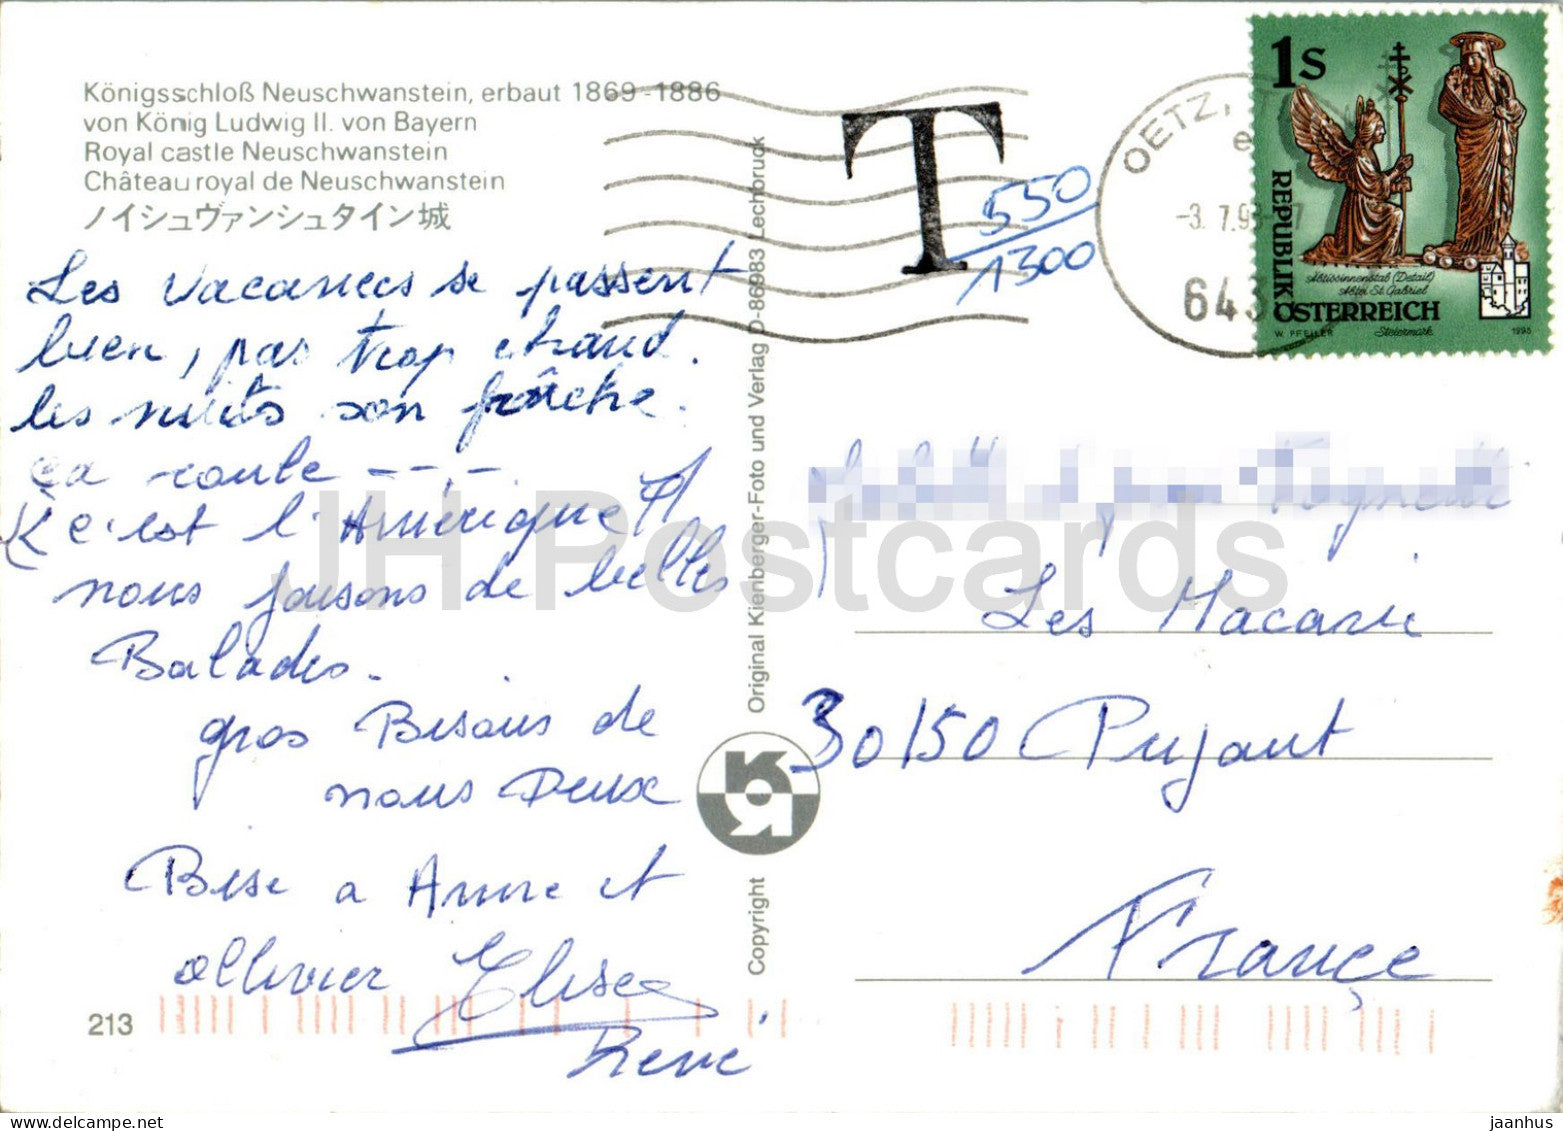 Königsschloß Neuschwanstein, erbaut 1869-1886
von König Ludwig II. von Bayern
Royal castle Neuschwanstein
Château royal de Neuschwanstein
ノイシュヴァンシュタイン城
Les vacances se passent
bien, pas trop chaud.
les nuits son fraîche.
ça roule ----
"c'est l'Amérique"
nous faisons de belles
Balades.
gros Bisous de
nous Deux
Bise a Anne et
Ollivier Elise
René
213
Original Kienberger-Foto und Verlag D-86983 Lechbruck
Copyright
T
550
1300
OETZ, T
e
-3. 7.9 -7
643
1S
REPUBLIK
ÖSTERREICH
Äbtissinnenstab (Detail)
Abtei St. Gabriel
Steiermark
W. PFEILER
1995
Les Macarie
30150 Pujaut
France
JH Postcards
www.hipstamp.com
jaanhus